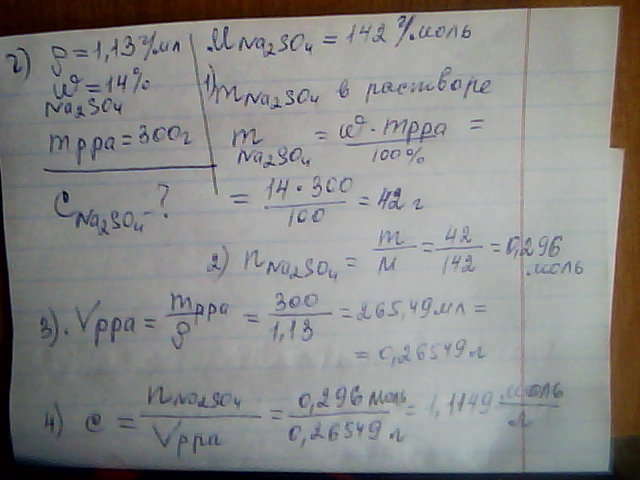 2) ρ = 1,13 г/мл
ω = 14%
Na₂SO₄
m рра = 300г
C Na₂SO₄ - ?
M Na₂SO₄ = 142 г/моль
1) m Na₂SO₄ в растворе
m Na₂SO₄ = ω · m рра / 100% =
= 14 · 300 / 100 = 42 г
2) n Na₂SO₄ = m / M = 42 / 142 = 0,296 моль
3). V рра = m рра / ρ = 300 / 1,13 = 265,49 мл =
= 0,26549 л
4) c = n Na₂SO₄ / V рра = 0,296 моль / 0,26549 л = 1,1149 моль / л